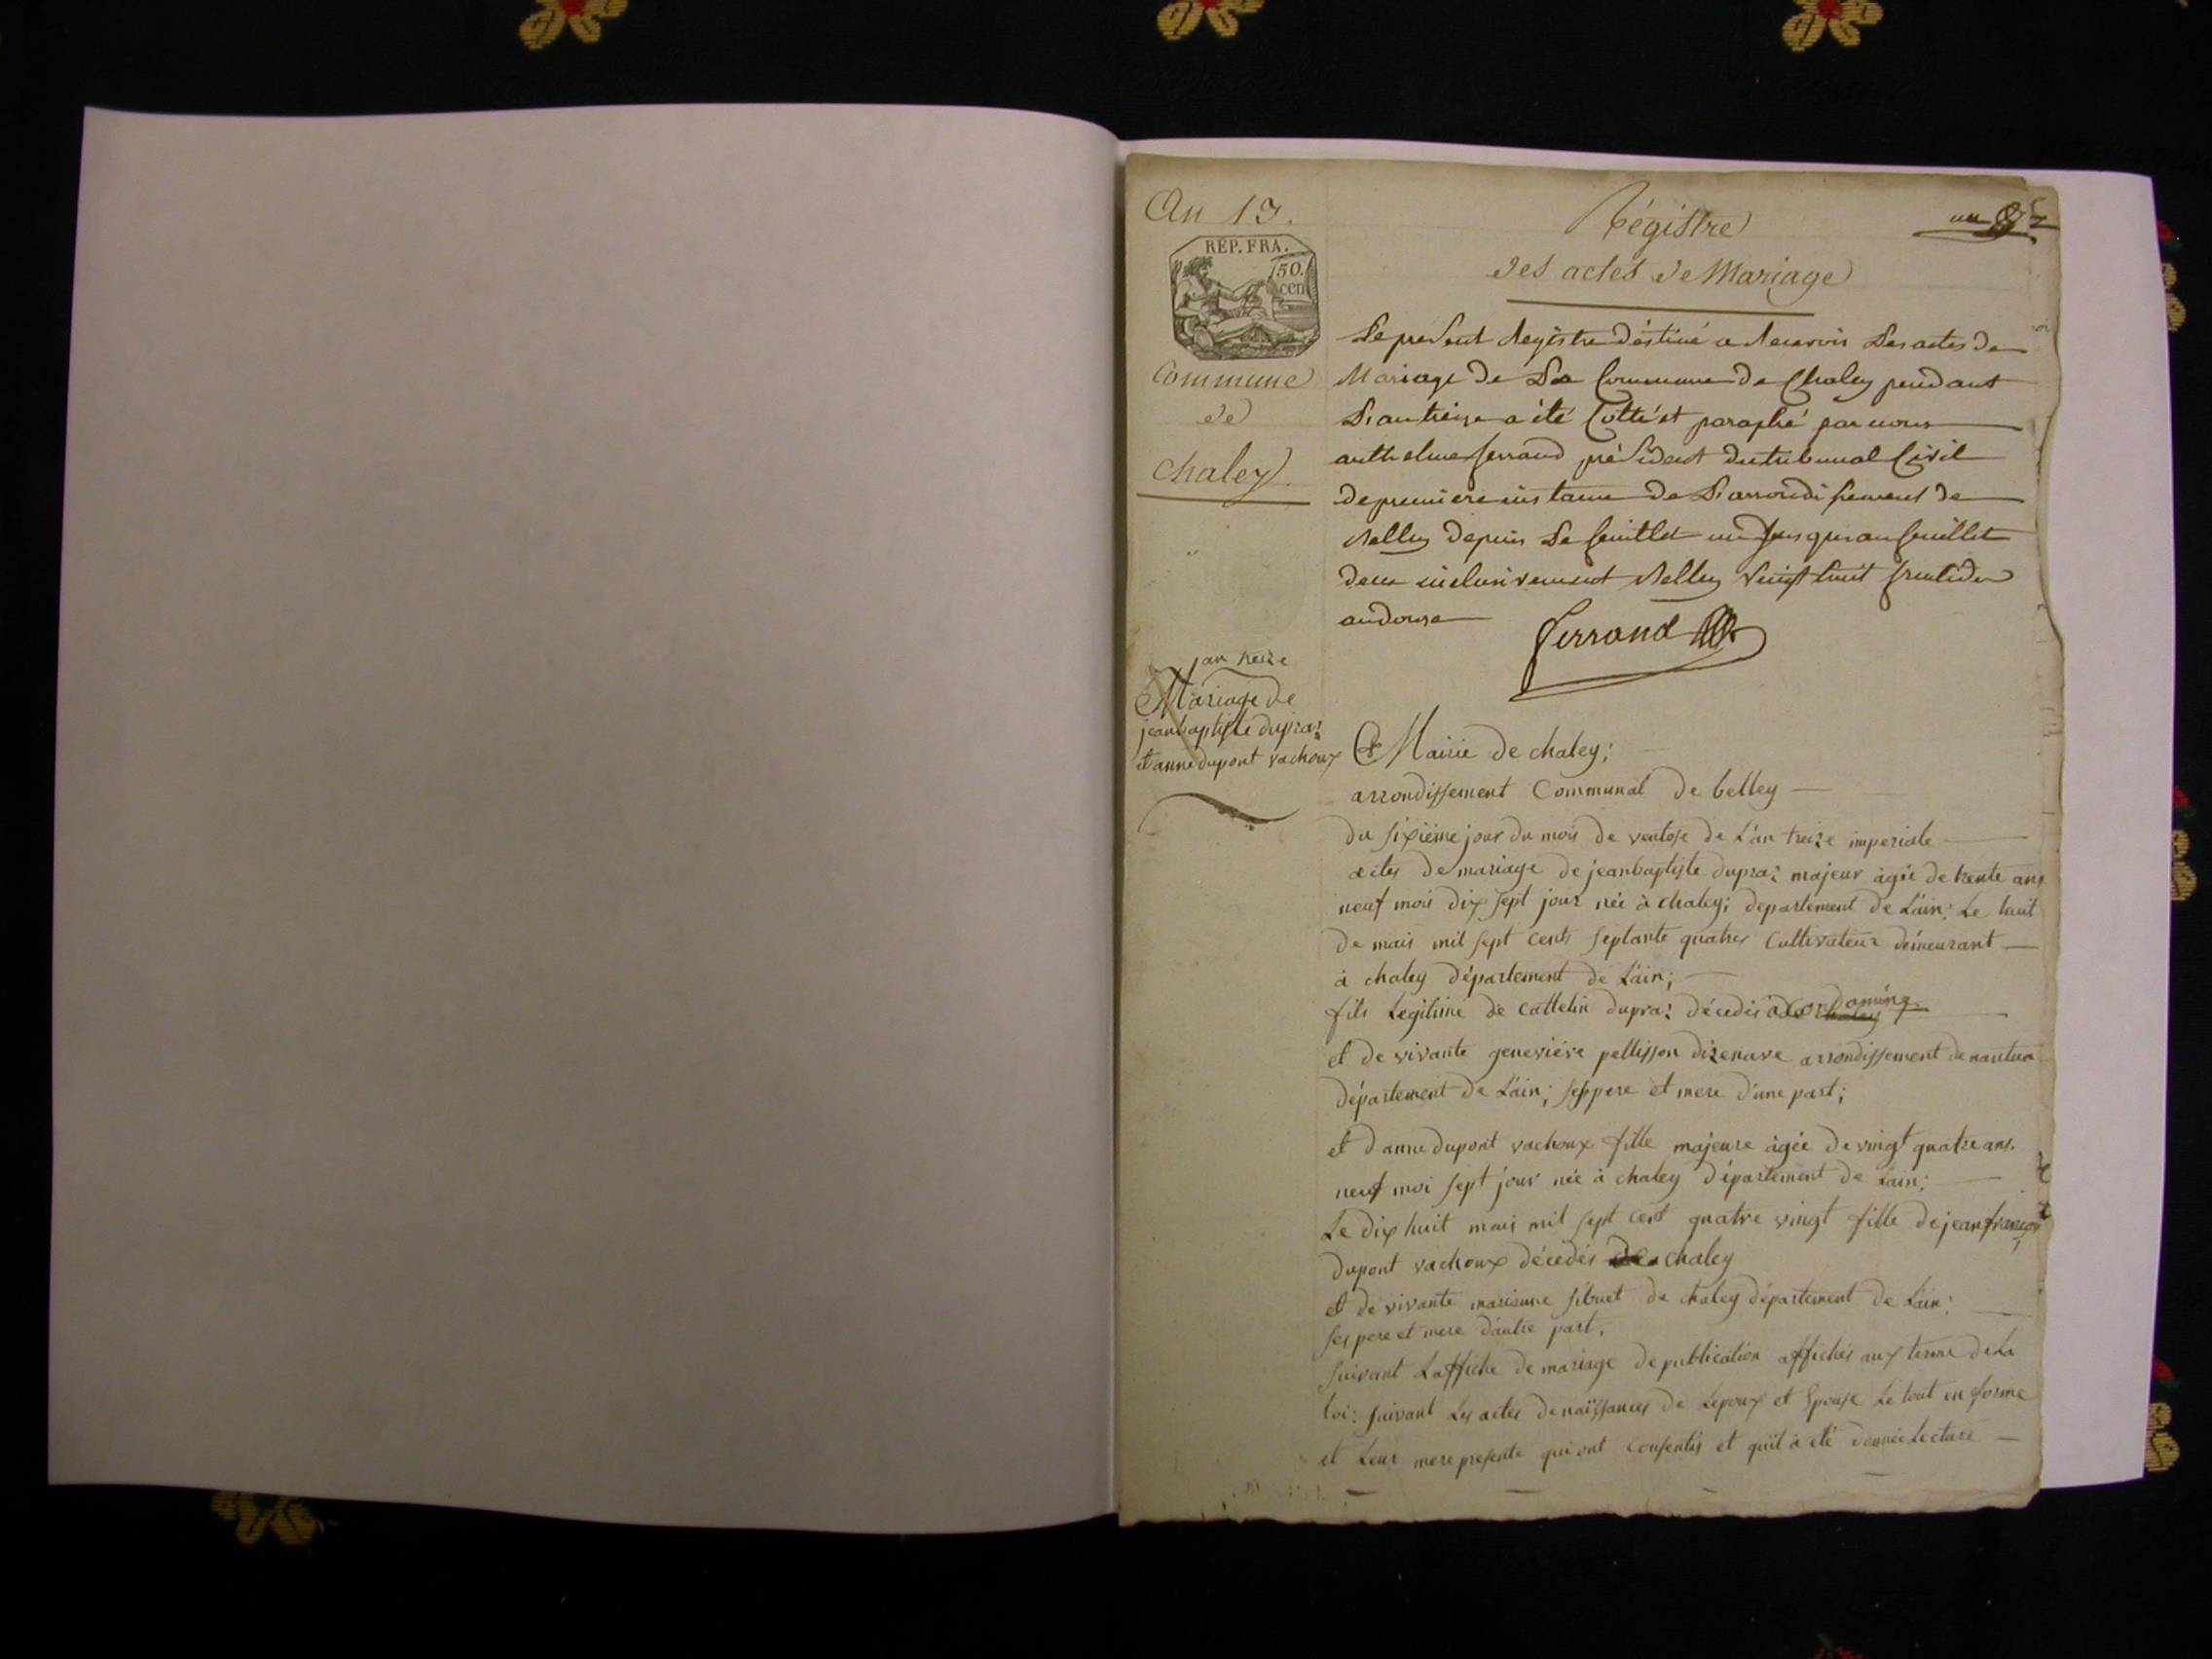 An 13.
REP. FRA.
50.
cen
Commune
de
chaley.
Régistre
des actes de Mariage
un
Le present Registre déstiné a Recevoir Les actes de
Mariage de La Commune de Chaley pendant
L'an treize a été Cotté et paraphé par nous
anthelme ferrand président du tribunal Civil
de premiere instance de L'arrondissement de
Belley depuis Le feuillet un Jusques au feuillet
deux inclusivement Belley vingt huit fructidor
an douze
Ferrand
an treize
Mariage de
jean baptiste dupraz
et anne dupont vachoux
Mairie de chaley;
arrondissement Communal de belley
du sixième jour du mois de ventose de L'an treize imperiale
actes de mariage de jean baptiste dupraz majeur âgée de trente ans
neuf mois dix sept jour née à chaley; departement de L'ain; Le huit
de mais mil sept cents septante quatres Cultivateur démeurant
à chaley département de L'ain;
fils Legitime de cattelin dupraz décedés
et de vivante geneviéve pellisson dizenave arrondissement de nantua
département de L'ain; ses pere et mere d'une part;
et d'anne dupont vachoux fille majeure âgée de vingt quatre ans.
neuf moi sept jour née à chaley département de L'ain;
Le dix huit mais mil sept cent quatre vingt fille de jean françois
dupont vachoux décedés chaley
et de vivante marianne sibuet de chaley département de L'ain;
ses pere et mere d'autre part.
suivant L'affiche de mariage de publication affichés aux terme de La
loi: suivant Les actes de naissances de Lepoux et Epouse Le tout en forme
et Leur mere presente qui ont consentis et qu'il à été donnée Lecture